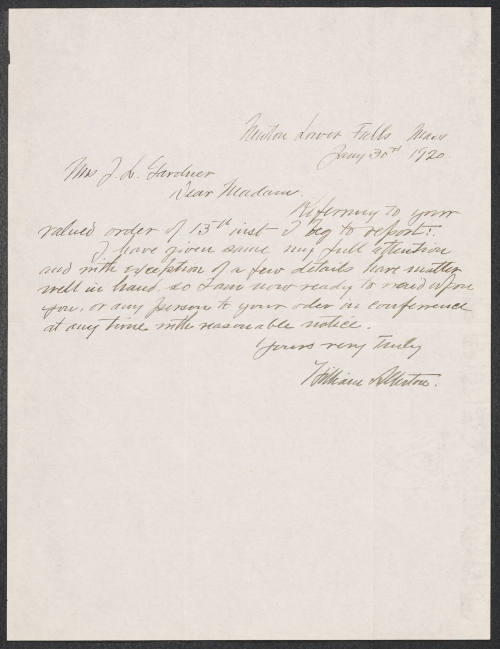 Newton Lower Falls Mass
Jany 30th 1920.
Mrs J. L. Gardner
Dear Madam.
Referring to your
valued order of 13th inst I beg to report:
I have given same my full attention
and with exception of a few details have matter
well in hand, so I am now ready to wait upon
you, or any person to your order in conference
at any time with reasonable notice.
Yours very truly
William